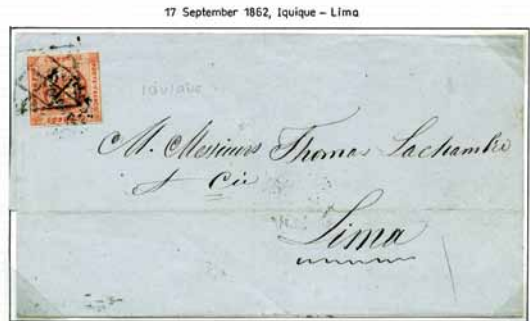 17 September 1862, Iquique – Lima
Iquique
M. Messieurs Thomas Lachambre
& Cie
Lima